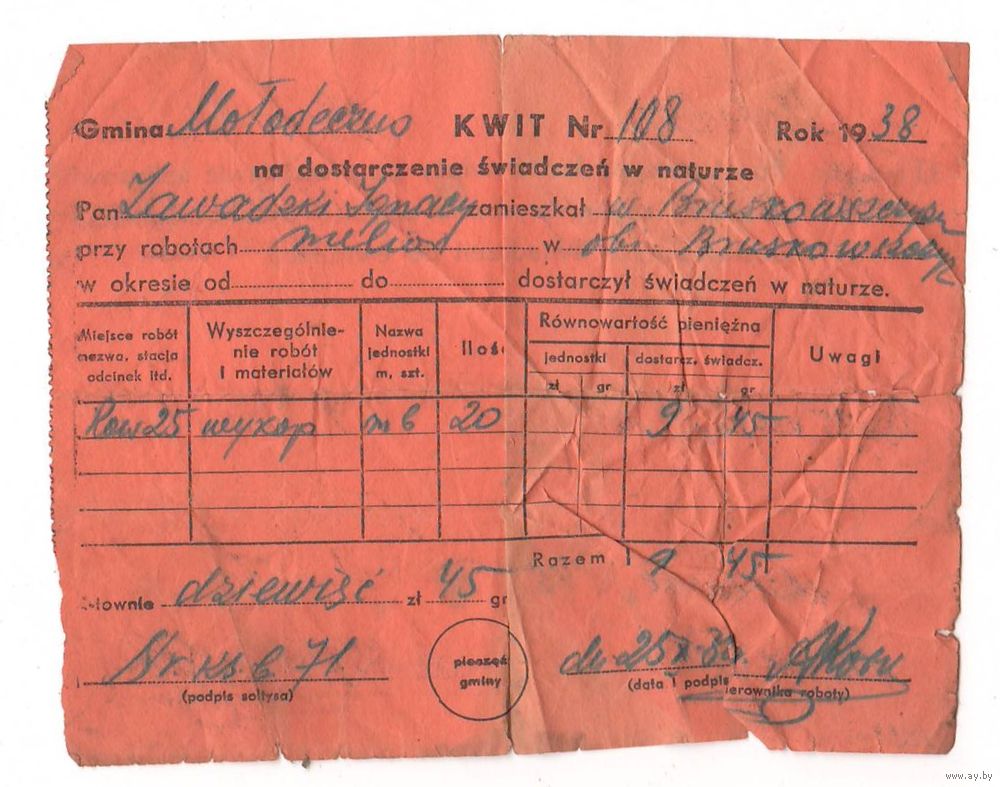 Gmina Mołodeczno KWIT Nr 108 Rok 1938
na dostarczenie świadczeń w naturze
Pan Zawadzki Ignacy zamieszkał w
przy robotach melior w obr.
w okresie od do dostarczył świadczeń w naturze.
Miejsce robót nazwa, stacja odcinek itd.
Wyszczególnienie robót i materiałów
Nazwa jednostki m, szt.
Ilość
Równowartość pieniężna
jednostki dostarcz. świadcz.
zł gr zł gr
Uwagi
Row 25 wykop m b 20 9 45
Razem 9 45
Słownie dziewięć zł 45 gr
Nr. ks b 71 dn 25
(podpis sołtysa) pieczęć gminy (data i podpis kierownika roboty)
www.ay.by